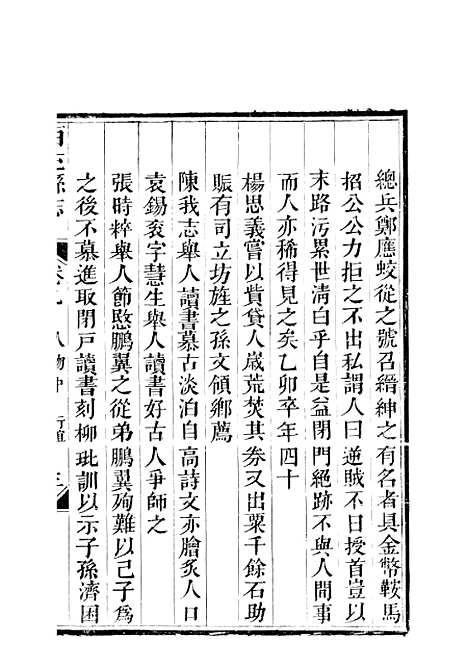 總兵鄭應蛟從之號召縉紳之有名者具金幣鞍馬
招公公力拒之不出私謂人曰逆賊不日授首豈以
末路污累世淸白乎自是益閉門絕跡不與人間事
而人亦稀得見之矣乙卯卒年四十
楊思義嘗以貲貸人歲荒焚其券又出粟千餘石助
賑有司立坊旌之孫文傾鄉薦
陳我志舉人讀書慕古淡泊自高詩文亦膾炙人口
袁錫衮字慧生舉人讀書好古人爭師之
張時粹舉人節愍鵬翼之從弟鵬翼殉難以己子爲
之後不慕進取閉戸讀書刻柳玭訓以示子孫濟困
縣志
卷九
人物中
行誼
三